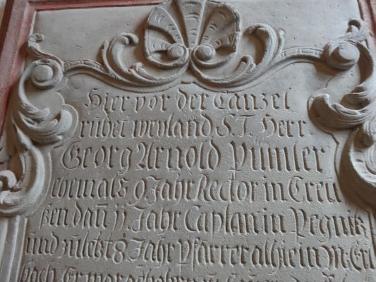 Hier vor der Canzel
ruhet weyland S.T. Herr
Georg Arnold Pumler
vormals 9 Jahr Rector in Creu
ßen dañ 11 Jahr Caplan in Pegnitz
und zuletzt 8 Jahr Pfarrer alhie in
bach Er war gebohren